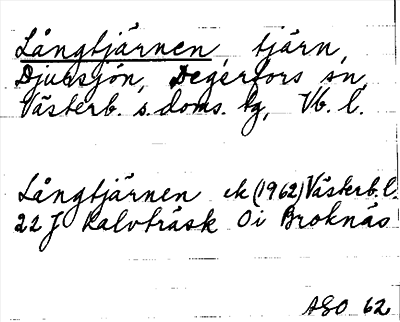 Långtjärnen, tjärn,
Djupsjön, Degerfors sn,
Västerb. s. doms. tg, Vb. l.
Långtjärnen ek (1962) Västerb. l.
22 J Kalvträsk 0i Broknäs
ASO 62